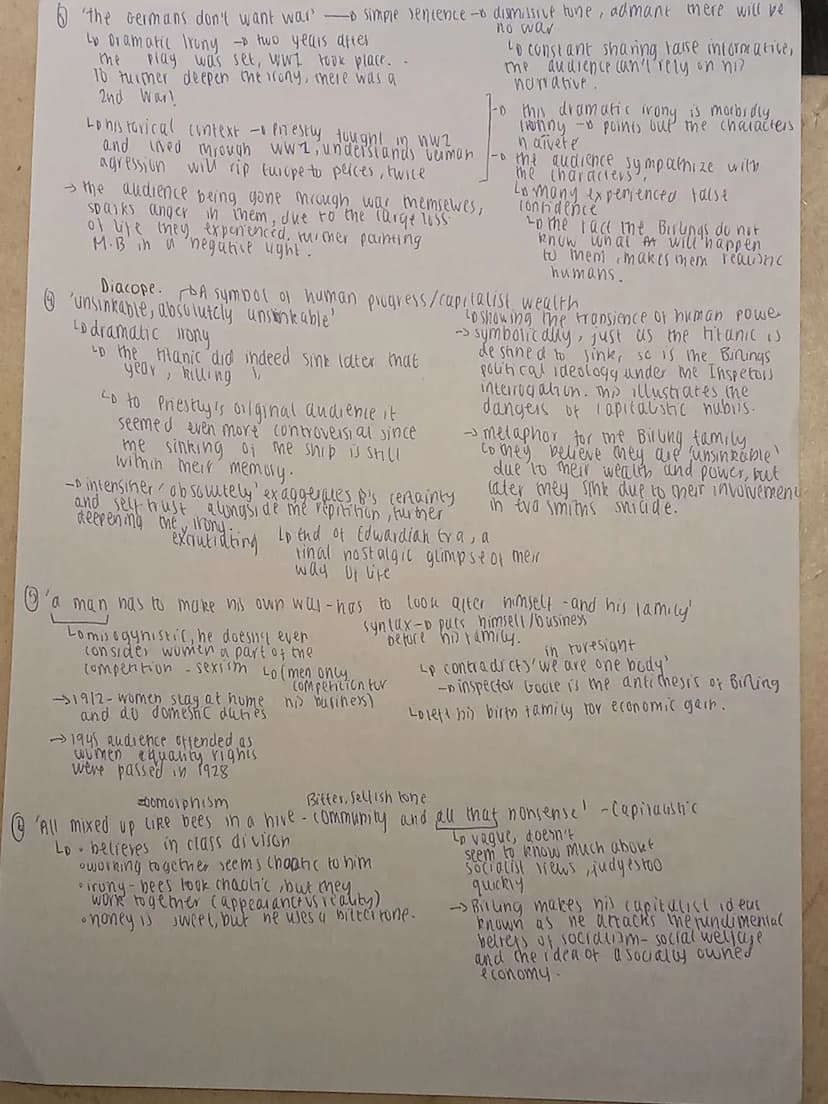 ③ 'the Germans don't want war' → simple sentence → dismissive tone, admant there will be
no war
↳ Dramatic Irony → two years after
the play was set, WW1 took place.
To further deepen the irony, there was a
2nd War!
↳ historical context → Priestly fought in WW1
and lived through WW2, understands German
agression will rip Europe to peices, twice
→ the audience being gone through war themselves,
sparks anger in them, due to the large loss
of life they experienced. Further painting
M.B in a negative light.
↳ constant sharing false informative,
the audience can't rely on his
narrative.
→ this dramatic irony is morbidly
ironny → points out the characters
naivete
→ the audience sympathize with
the characters,
↳ many experienced false
confidence
↳ the fact the Birlings do not
know what will happen
to them, makes them realistic
humans.
Diacope. ↱ A symbol of human progress/capitalist wealth
④ 'unsinkable, absolutely unsinkable'
↳ dramatic irony
↳ the titanic did indeed sink later that
year, killing
↳ to Priestly's original audience it
seemed even more controversial since
the sinking of the ship is still
within their memory.
→ intensifier 'absolutely' exaggerates B's certainty
and self-trust alongside the repitition, further
deepening the irony..
excrutiating
↳ end of Edwardian Era, a
final nostalgic glimpse of their
way of life
↳ showing the transience of human power
→ symbolically, just as the titanic is
destined to sink, so is the Birlings
political ideology under the Inspetors
interrogation. This illustrates the
dangers of capitalistic hubris.
→ metaphor for the Birling family
↳ they believe they are 'unsinkable'
due to their wealth and power, but
later they sink due to their involvement
in Eva Smiths suicide.
⑤ 'a man has to make his own way - has to look after himself - and his family'
↳ misogynistic, he doesn't even
consider women a part of the
competition - sexism
↳ (men only
competition for
his business)
→ 1912 - women stay at home
and do domestic duties
→ 1945 audience offended as
women equality rights
were passed in 1928
syntax → puts himself/business
before his family.
in foresight
↳ contradicts 'we are one body'
→ inspector Goole is the antithesis of Birling
↳ left his birth family for economic gain.
zoomorphism Bitter, selfish tone
⑥ 'All mixed up like bees in a hive - community and all that nonsense' - Capitalistic
↳ • believes in class divison
• working together seems chaotic to him
• irony - bees look chaotic, but they
work together (appearance vs reality)
• honey is sweet, but he uses a bitter tone.
↳ vague, doesn't
seem to know much about
socialist views, judges too
quickly
→ Birling makes his capitalist ideas
known as he attacks the fundimental
beliefs of socialism - social welfare
and the idea of a socially owned
economy.